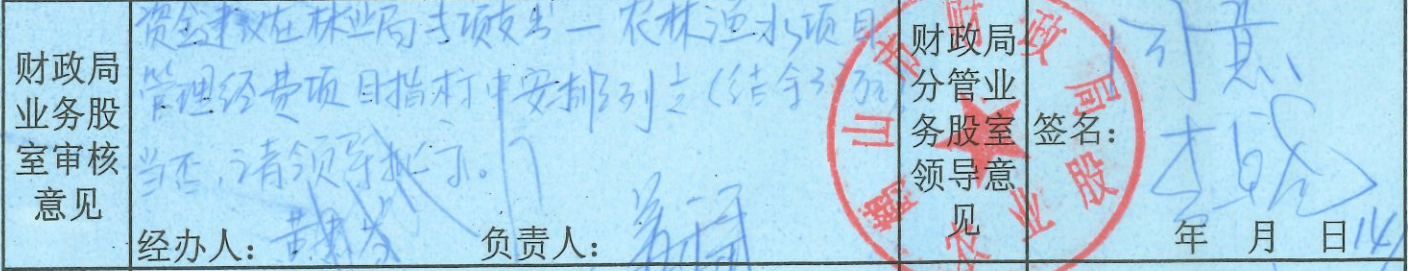 财政局
业务股
室审核
意见
资金建议在林业局专项支出一农林渔水项目
管理经费项目指标中安排列支(结余
当否,请领导批示。
经办人:
负责人:
财政局
分管业
务股室
领导意
见
同意
签名:
年 月 日
山市财政局
农业股